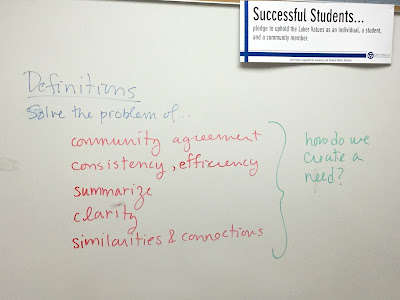 Successful Students...
pledge to uphold the Laker Values as an individual, a student,
and a community member.
Definitions
Solve the problem of...
community agreement
consistency, efficiency
summarize
clarity
similarities & connections
how do we
create a
need?